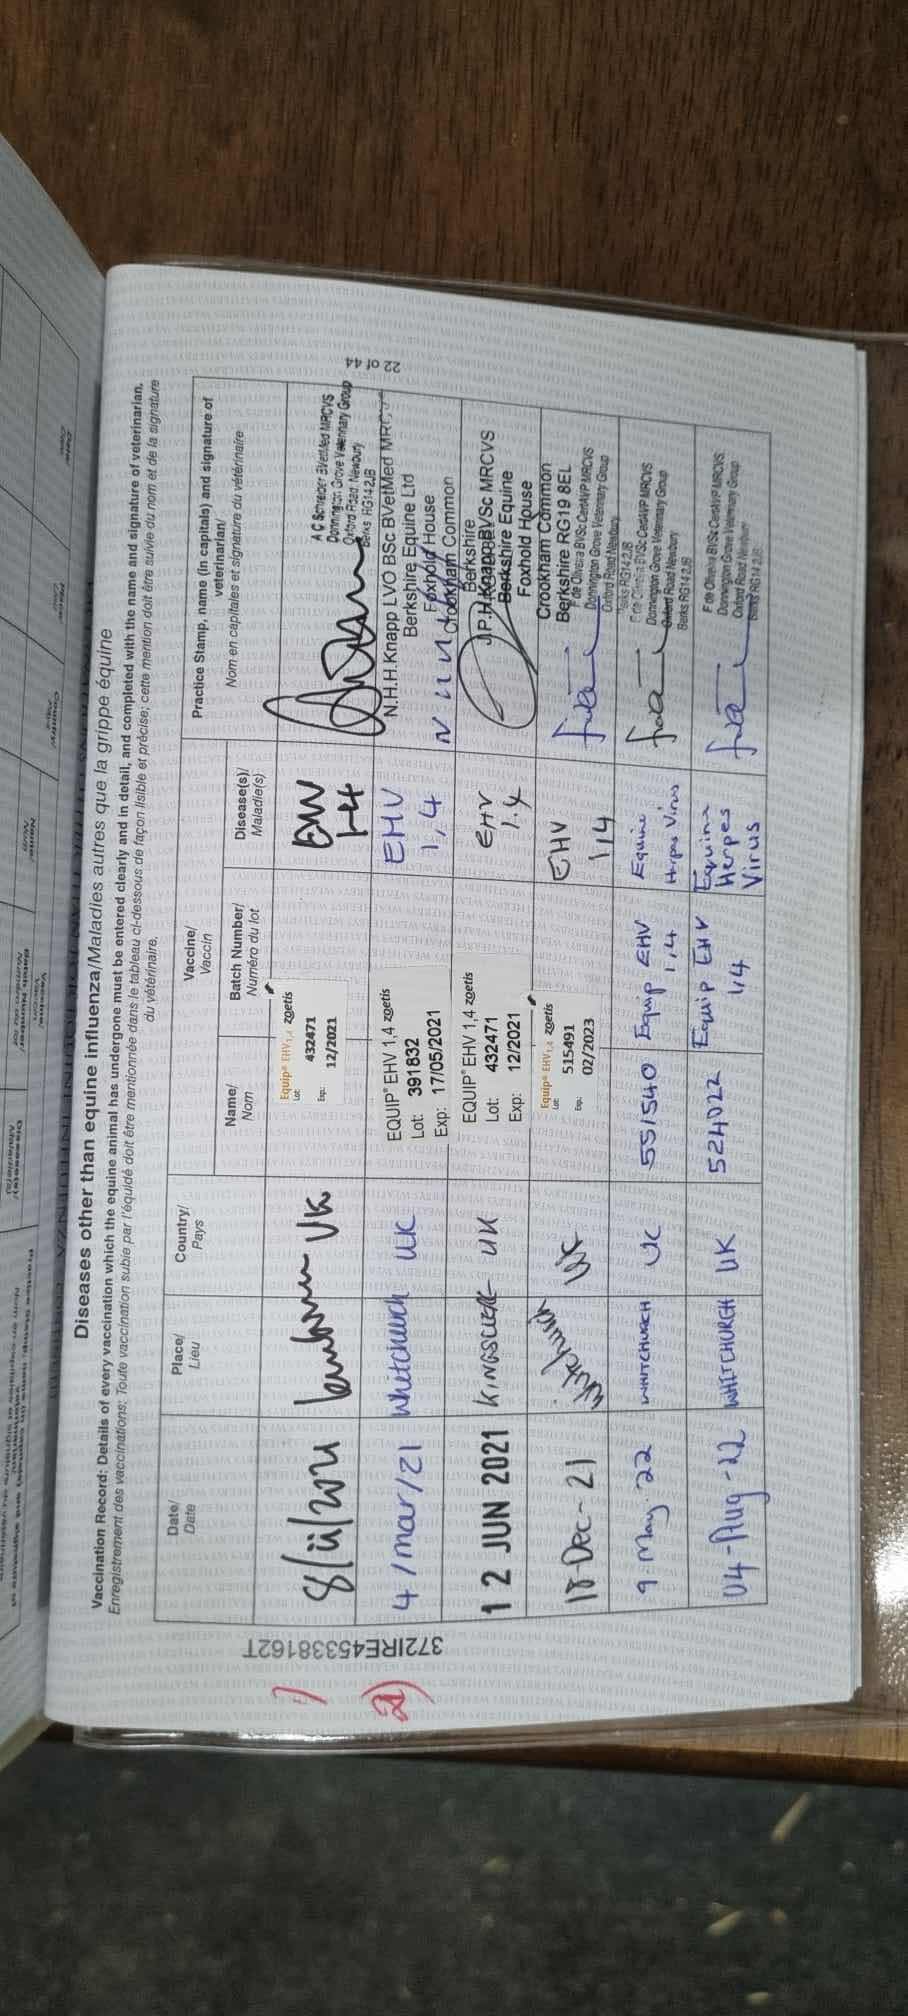 Diseases other than equine influenza/Maladies autres que la grippe équine
Vaccination Record: Details of every vaccination which the equine animal has undergone must be entered clearly and in detail, and completed with the name and signature of veterinarian.
Enregistrement des vaccinations: Toute vaccination subie par l'équidé doit être mentionnée dans le tableau ci-dessous de façon lisible et précise; cette mention doit être suivie du nom et de la signature
du vétérinaire.
Date/
Date
Place/
Lieu
Country/
Pays
Vaccine/
Vaccin
Name/
Nom
Batch Number/
Numéro du lot
Disease(s)/
Maladie(s)
Practice Stamp, name (in capitals) and signature of
veterinarian/
Nom en capitales et signature du vétérinaire
UK
Equip® EHV1,4 zoetis
Lot: 432471
Exp: 12/2021
EHV
1-4
A C Schreiber BVetMed MRCVS
Donnington Grove Veterinary Group
Oxford Road Newbury
Berks RG14 2JB
4/mar/21
Whitchurch
UK
EQUIP® EHV 1,4 zoetis
Lot: 391832
Exp: 17/05/2021
EHV
1,4
N.H.H.Knapp LVO BSc BVetMed MRCVS
Berkshire Equine Ltd
Foxhold House
Crookham Common
Berkshire
12 JUN 2021
KINGSCLERE
UK
EQUIP® EHV 1,4 zoetis
Lot: 432471
Exp: 12/2021
EHV
1.4
J.P.H.Knapp BVSc MRCVS
Berkshire Equine
Foxhold House
Crookham Common
Berkshire RG19 8EL
18-Dec-21
Whitchurch
UK
Equip® EHV1,4 zoetis
Lot: 515491
Exp: 02/2023
EHV
1,4
F de Oliveira BVSc CertAVP MRCVS
Donnington Grove Veterinary Group
Oxford Road Newbury
Berks RG14 2JB
9 May. 22
WHITCHURCH
UK
551540
Equip EHV
1,4
Equine
Herpes Virus
F de Oliveira BVSc CertAVP MRCVS
Donnington Grove Veterinary Group
Oxford Road Newbury
Berks RG14 2JB
04-Aug-22
WHITCHURCH
UK
524022
Equip EHV
1,4
Equine
Herpes
Virus
F de Oliveira BVSc CertAVP MRCVS
Donnington Grove Veterinary Group
Oxford Road Newbury
Berks RG14 2JB
372IRE45338162T
22 of 44